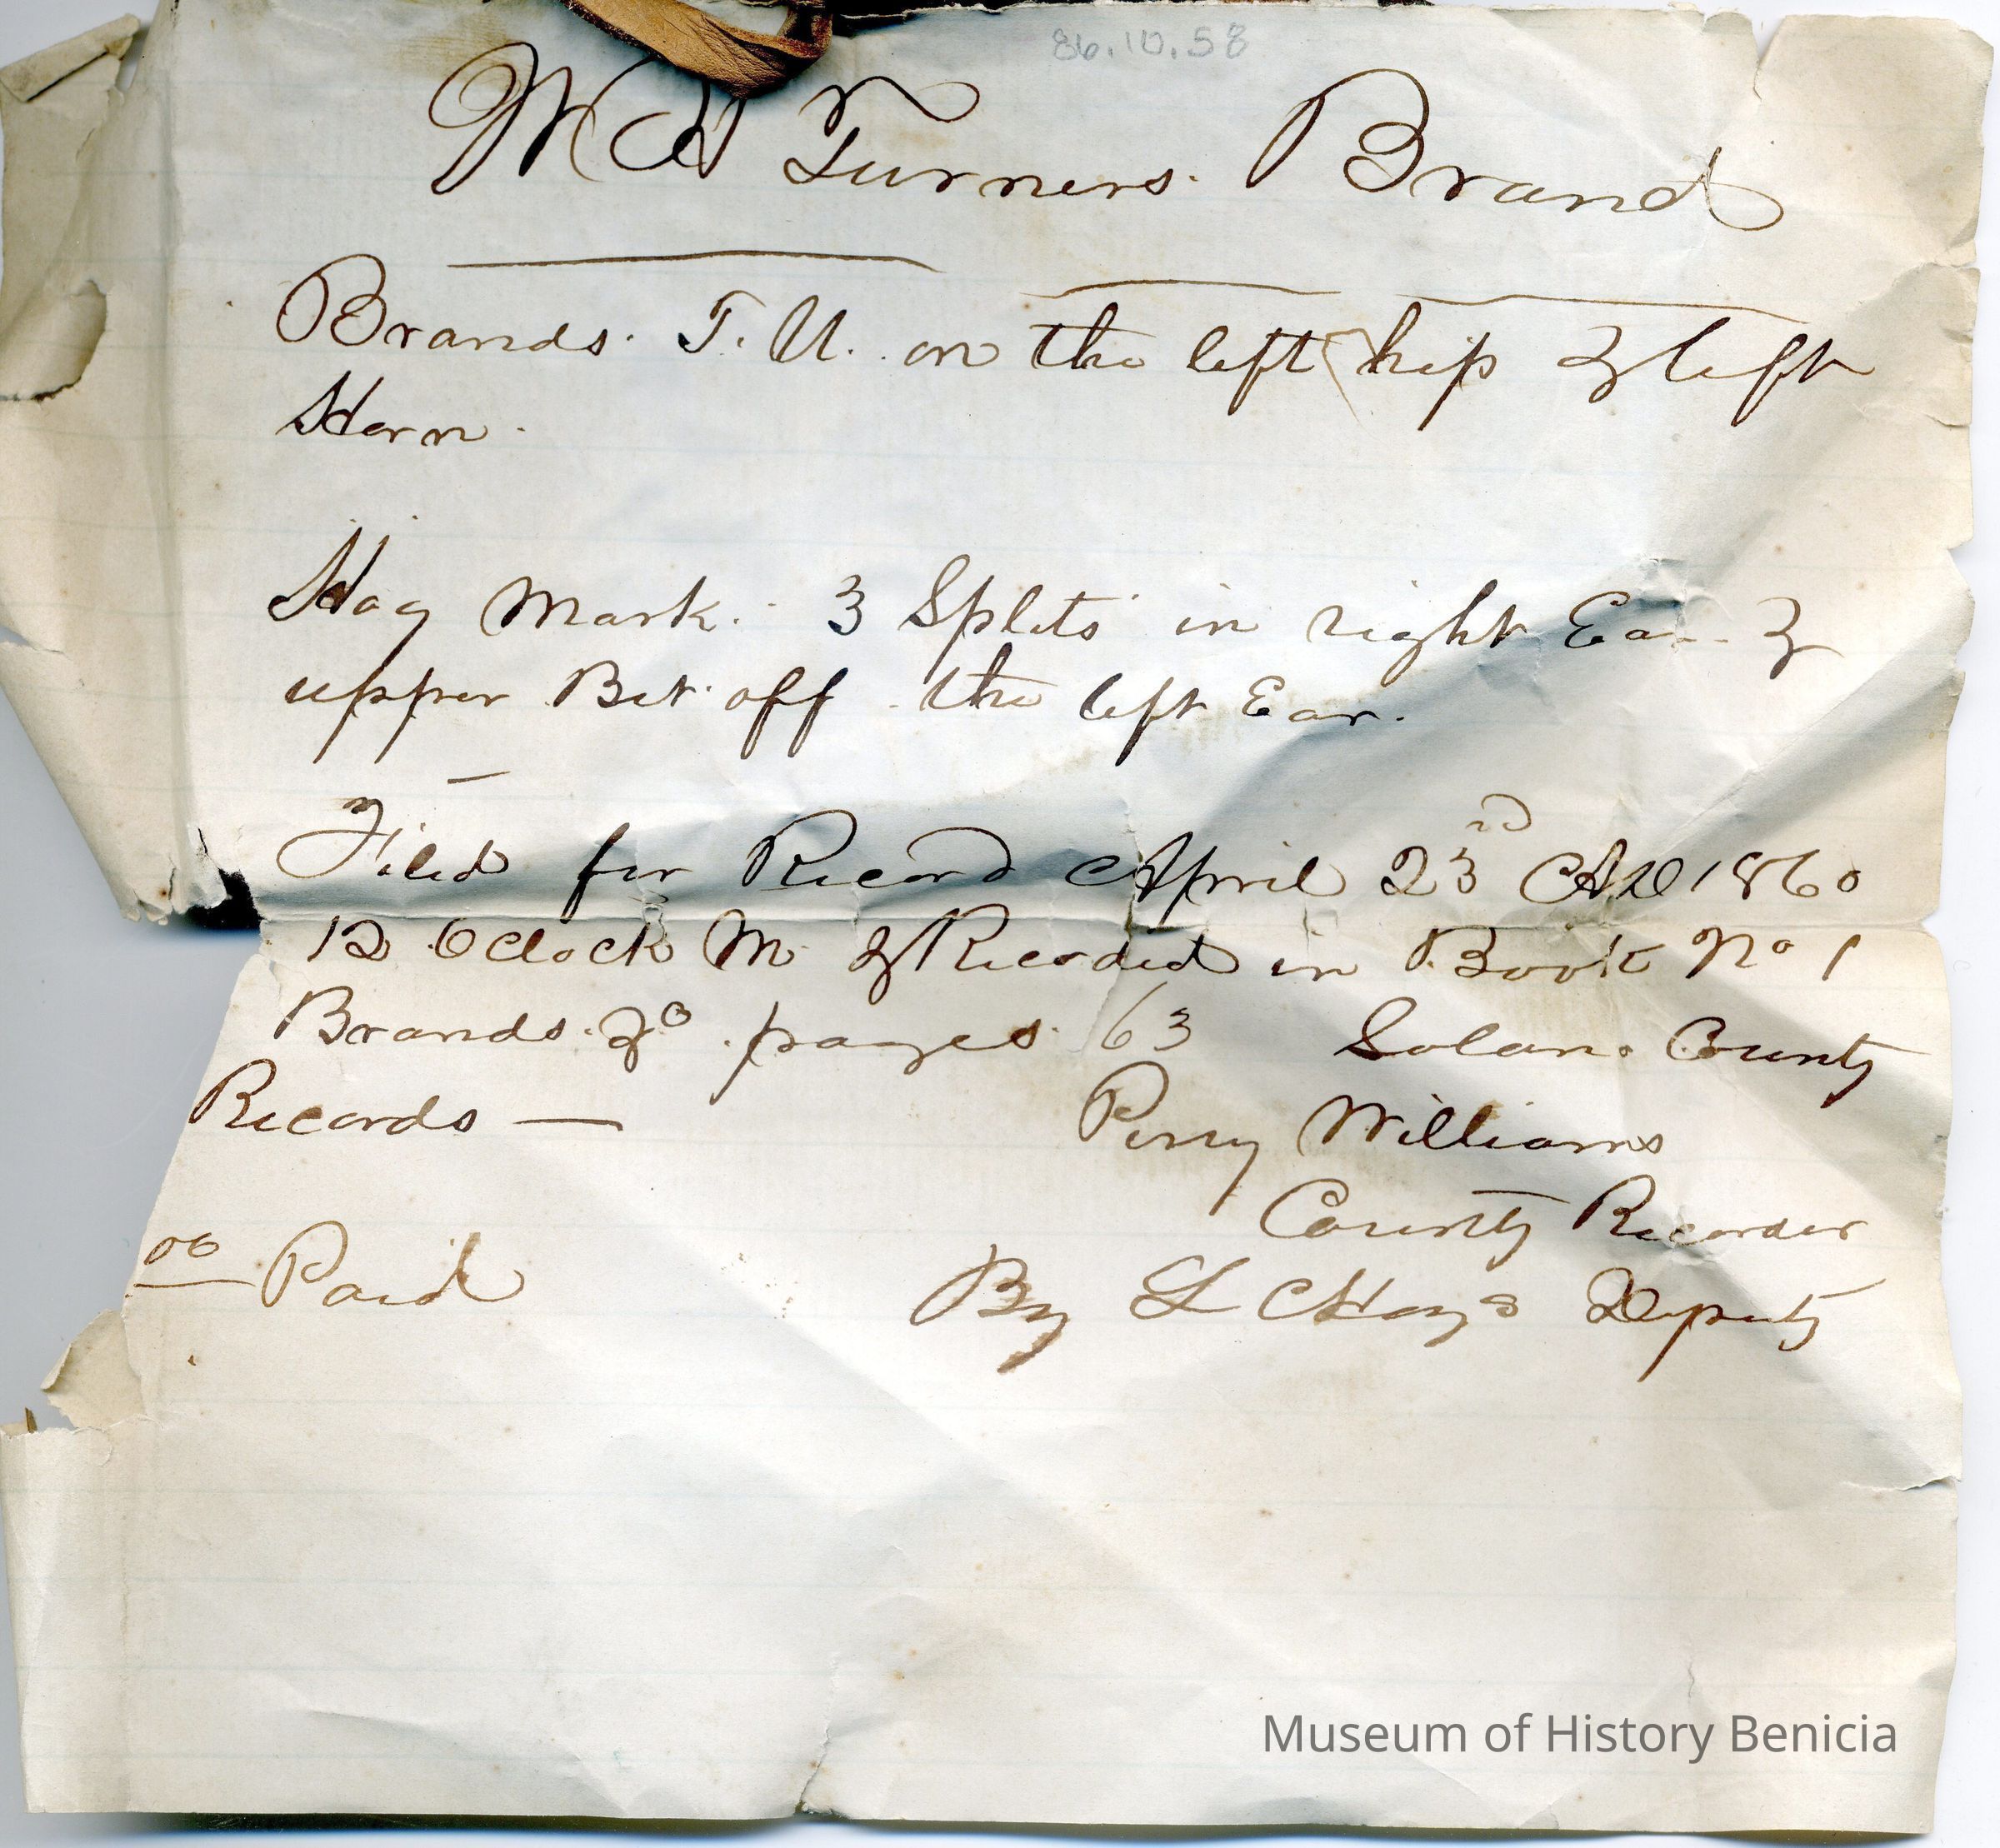 86.10.58
Turners Brand
Brands. T. U. on the left hip & left
Horn.
Hog Mark. 3 Splits in right Ear &
upper Bit off the left Ear.
Filed for Record April 23rd AD 1860
12 O Clock M & Recorded in Book No 1
Brands &c pages 63 Solano County
Records —
Perry Williams
County Recorder
oo Paid
By L C Hays Deputy
Museum of History Benicia